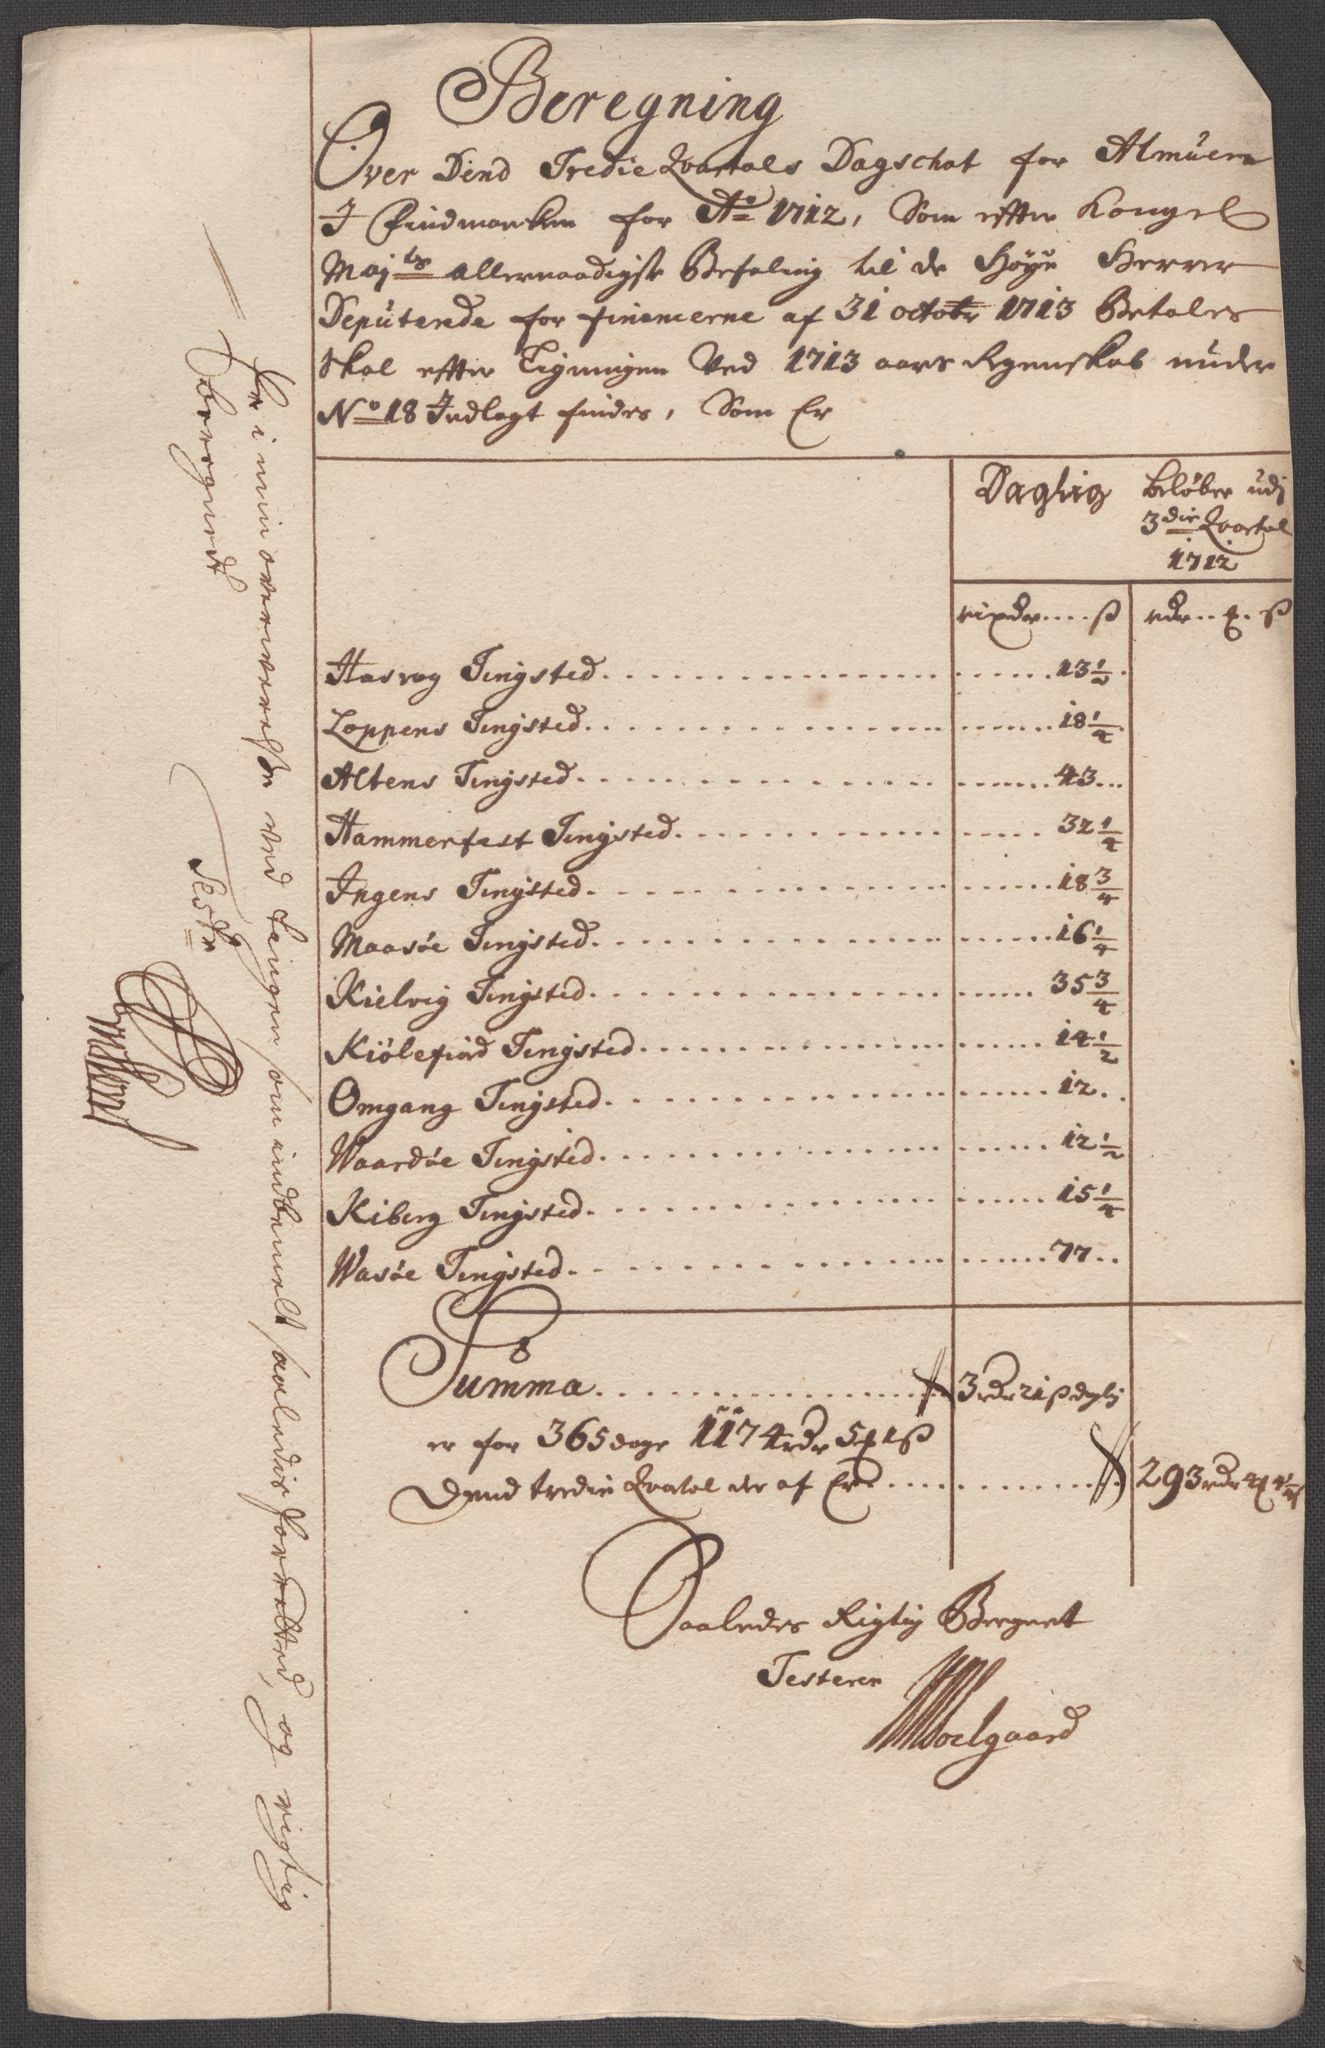 Beregning
Over Dend Tredie Qvartals Dagschat for Almuen
I Findmarken for Ao 1712, Som effter Kongel
Majts allernaadigste Befaling til de Høye Herrer
Deputerede for financerne af 31 octobr 1713 Betales
skal effter Ligningen Ved 1713 aars Regenskab under
No 18 Indlagt findes, Som Er
Daglig beløber udj
3die Qvartal
1712
rixdr .... ß rdr .. ... ß
Hasvog Tingsted 13 1/2
Loppens Tingsted 18 1/4
Altens Tingsted 43
Hammerfest Tingsted 32 1/4
Ingens Tingsted 18 3/4
Maasøe Tingsted 16 1/4
Kielvig Tingsted 35 3/4
Kiølefiord Tingsted 14 1/2
Omgang Tingsted 12
Waardøe Tingsted 12 1/2
Kiberg Tingsted 15 1/4
Wasøe Tingsted 77
Summa 3 rdr 21 ß dglj
er for 365 dage 1174 rdr 5 1 ß
Dend tredie Qvartal der af Er 293 rdr
Saaledes Rigtig Beregnet
Testerer
Woelgaard
Er i min overværelse ved tingen som indbemelt saaledis forretted, og rigtig
beregnedt
Testr